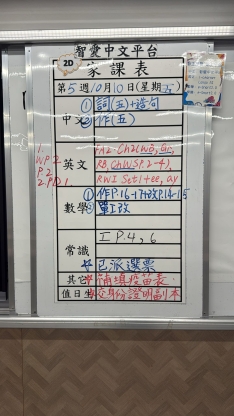 智愛中文平台
2D
家課表
第5週10月10日(星期五)
中文
①詞(五)+造句
②作(五)
1.
WP
P.2
2.PD1.
英文
RB, Ch4(WS P.2-4),
RWI Set1+ee, ay
數學
①作P.16-17+改P.14-15
②單1改
常識
工P.4, 6
☆已派選票
其它
*補填疫苗表
值日生
交身份證明副本